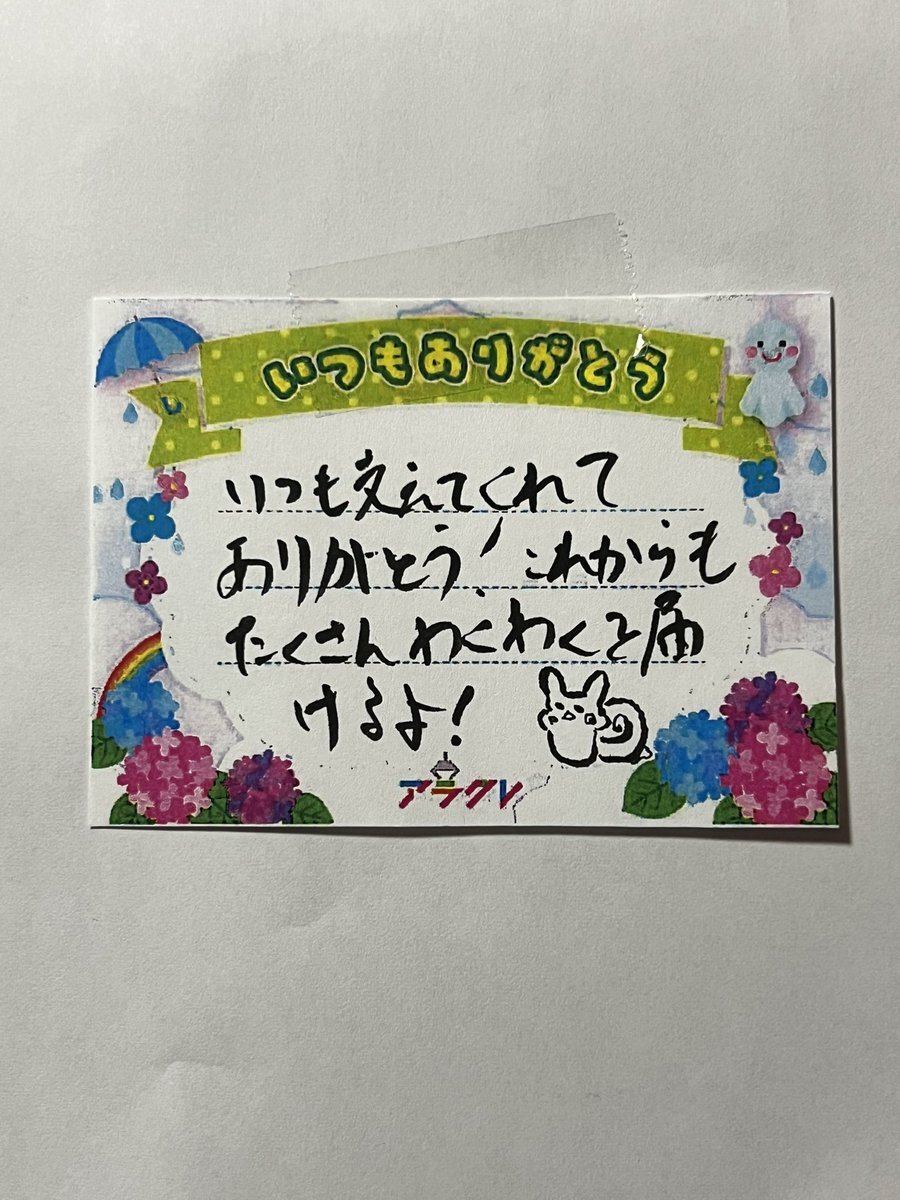 いつもありがとう
いつも支えてくれて
ありがとう！これからも
たくさんわくわくを届
けるよ！
アラクレ